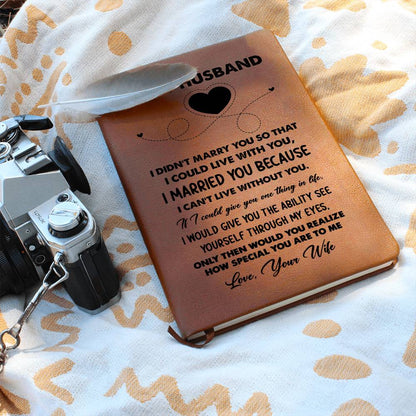 HUSBAND
I DIDN'T MARRY YOU SO THAT
I COULD LIVE WITH YOU,
I MARRIED YOU BECAUSE
I CAN'T LIVE WITHOUT YOU.
If I could give you one thing in life,
I WOULD GIVE YOU THE ABILITY SEE
YOURSELF THROUGH MY EYES,
ONLY THEN WOULD YOU REALIZE
HOW SPECIAL YOU ARE TO ME
Love, Your Wife